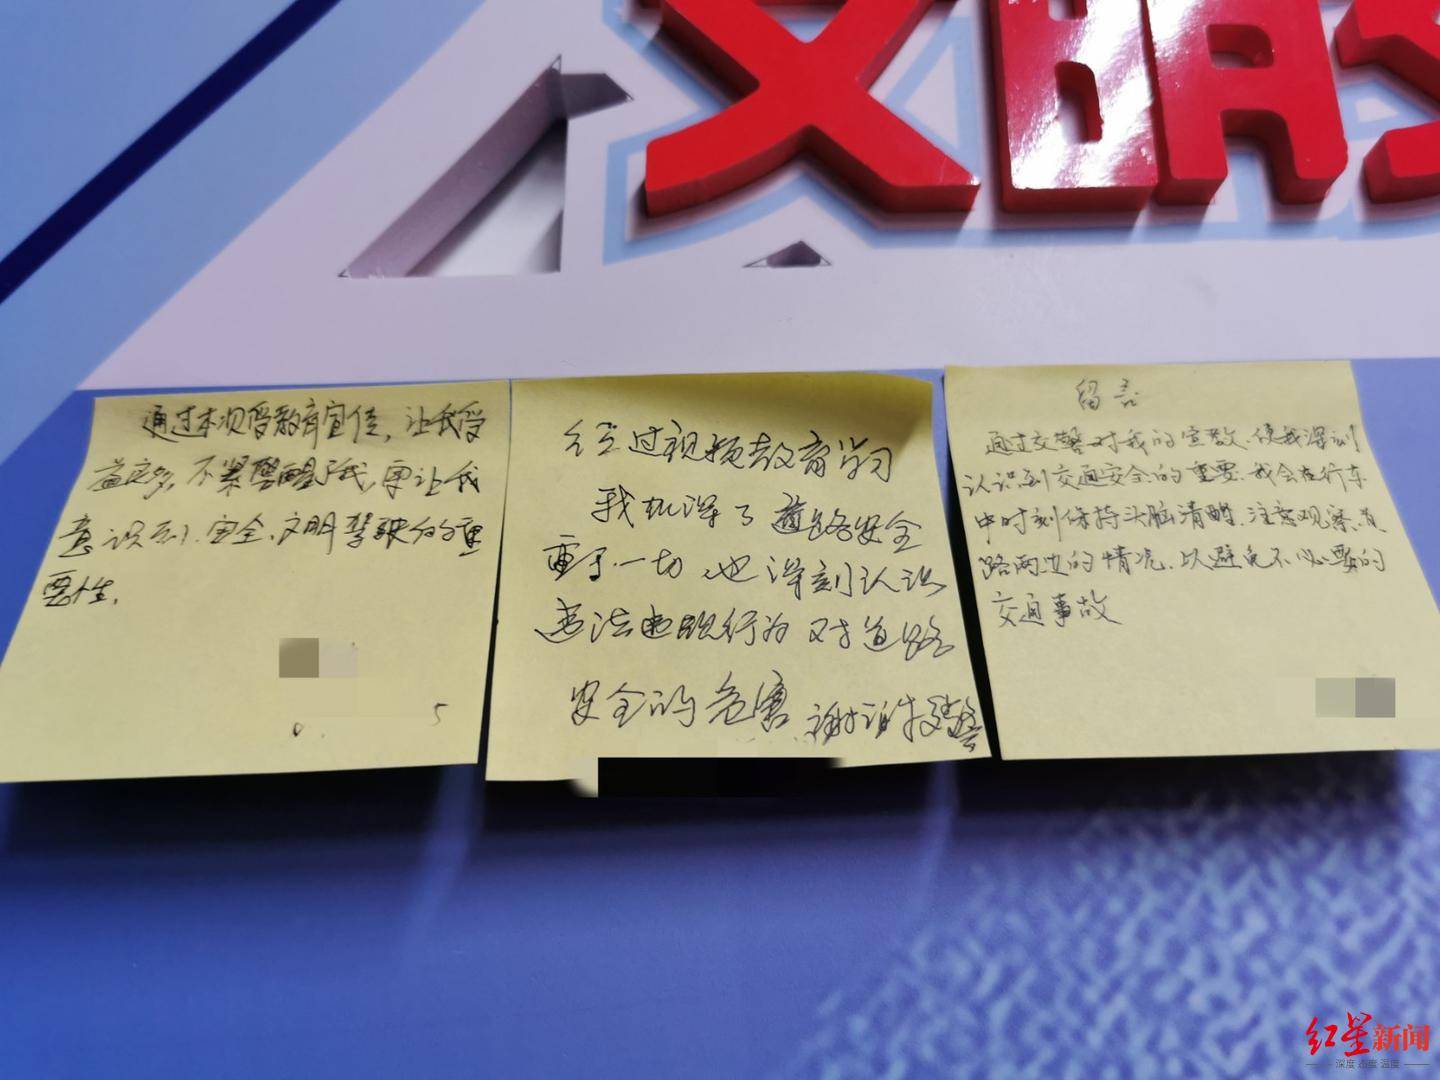 通过本次受教育宣传，让我受
益良多，不紧警醒了我，更让我
意识到，安全、文明驾驶的重
要性。
经过视频教育学习
我加深了道路安全
重于一切，也深刻认识
违法违规行为对道路
安全的危害，谢谢交警
留言
通过交警对我的宣教，使我深刻
认识到交通安全的重要，我会在行车
中时刻保持头脑清醒，注意观察道
路两边的情况，以避免不必要的
交通事故
红星新闻
深度 态度 温度